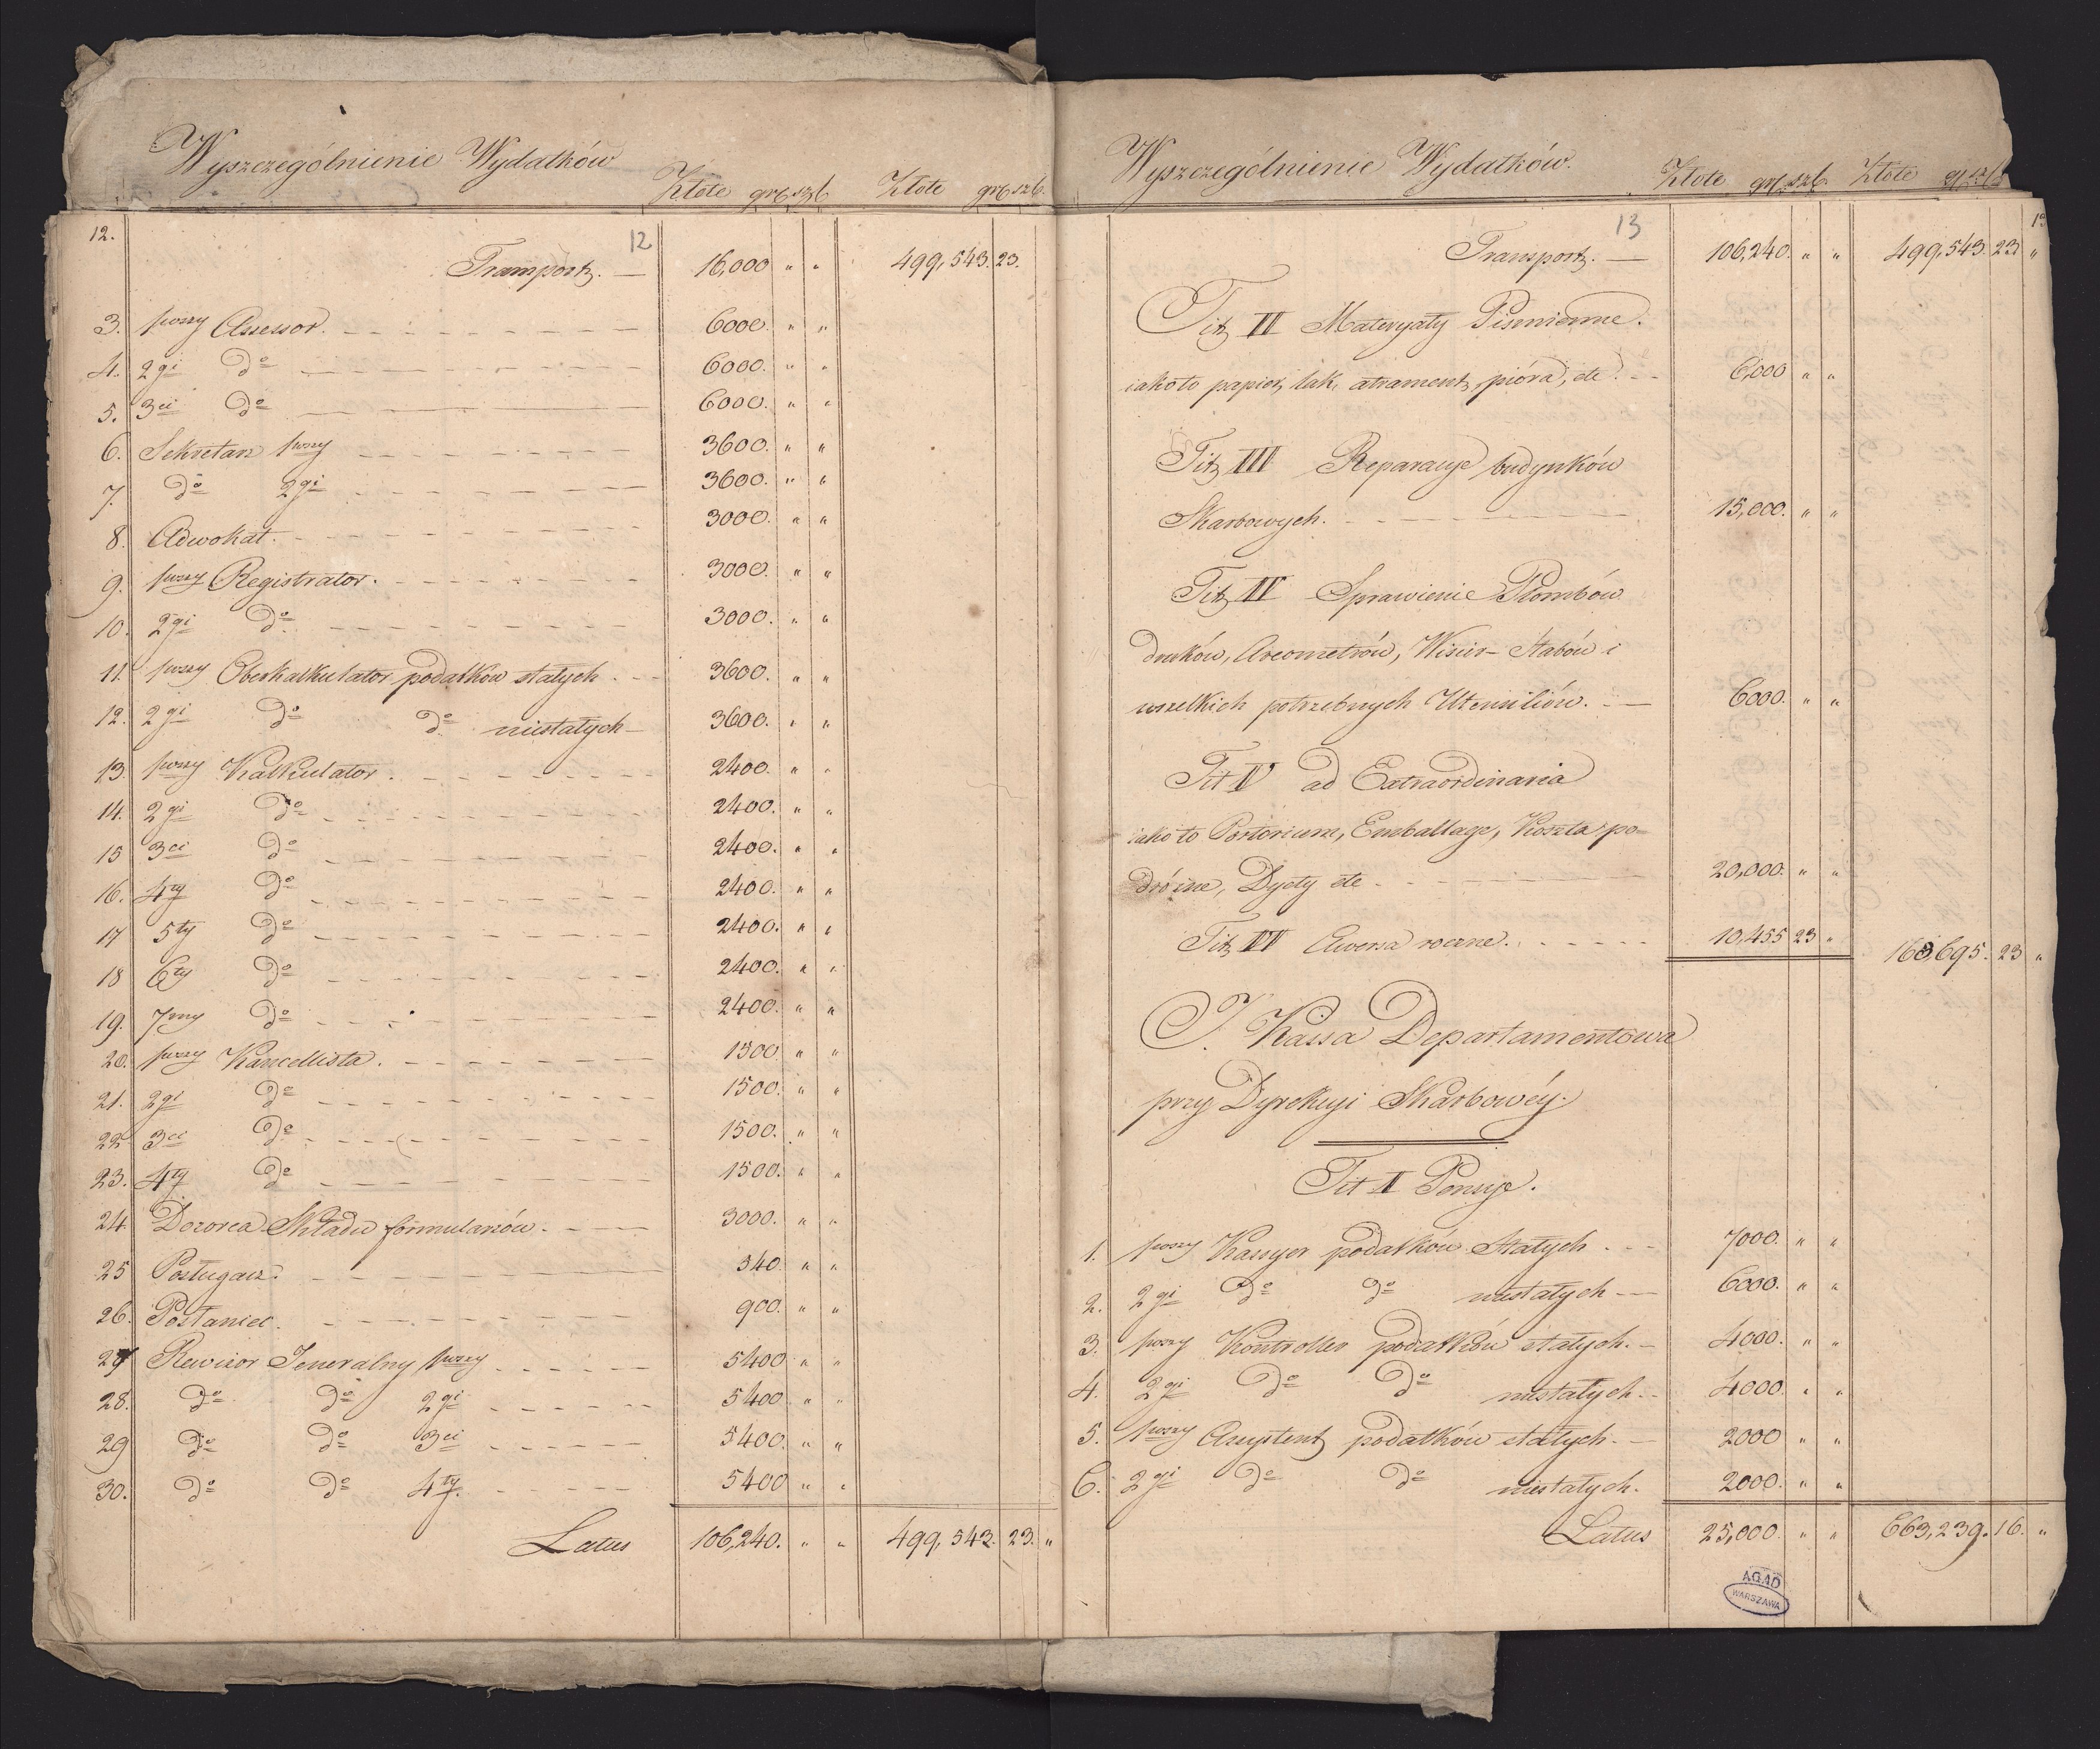 Wyszczególnienie Wydatków
Złote gr. szl. Złote gr. szl.
12.
12
Transport. — 16,000 " " 499,543. 23.
3. 1wszy Assessor. 6000. " "
4. 2gi do 6000. " "
5. 3ci do 6000. " "
6. Sekretarz 1wszy 3600. " "
7. do 2gi 3600. " "
8. Adwokat. 3000. " "
9. 1wszy Registrator. 3000. " "
10. 2gi do 3000. " "
11. 1wszy Oberkalkulator podatków stałych. 3600. " "
12. 2gi do do niestałych — 3600. " "
13. 1wszy Kalkulator. 2400. " "
14. 2gi do 2400. " "
15 3ci do 2400. " "
16. 4ty do 2400. " "
17 5ty do 2400. " "
18 6ty do 2400. " "
19. 7my do 2400. " "
20. 1wszy Kancellista. 1500 " "
21. 2gi do 1500. " "
22 3ci do 1500. " "
23. 4ty do 1500. " "
24. Dozorca Składu formularzów. 3000. " "
25 Posługacz. 540. " "
26. Posłaniec. 900. " "
27 Rewizor Jeneralny 1wszy 5400 " "
28. do do 2gi 5400 " "
29 do do 3ci 5400. " "
30. do do 4ty. 5400 " "
Latus 106,240. " " 499,543. 23. "
Wyszczególnienie Wydatków.
Złote gr. szl. Złote gr. szl.
13
13
Transport. — 106,240. " " 499,543. 23 "
Tit II Materyały Piśmienne.
iako to papier, lak, atrament, pióra, etc. 6,000 " "
Tit III Reparacye budynków
Skarbowych. 15,000. " "
Tit IV Sprawienie Plombów
druków, Areometrów, Wisir-Stabów i
wszelkich potrzebnych Utensiliów. — 6000. " "
Tit V ad Extraordinaria
iako to Portorium, Emballage, Koszta po=
dróżne, Dyety etc 20,000. " "
Tit VI Aversa roczne. 10,455 23 " 163,695. 23 "
J. Kassa Departamentowa
przy Dyrekcyi Skarbowéy.
Tit I Pensye.
1. 1wszy Kassyer podatków Stałych 7000. " "
2. 2gi do do niestałych — 6000. " "
3. 1wszy Kontroller podatków stałych. — 4000. " "
4. 2gi do do niestałych. 4000. " "
5. 1wszy Assystent podatków stałych. — 2000 " "
6. 2gi do do niestałych. 2000. " "
Latus 25,000. " " 663,239. 16. "
AGAD
WARSZAWA